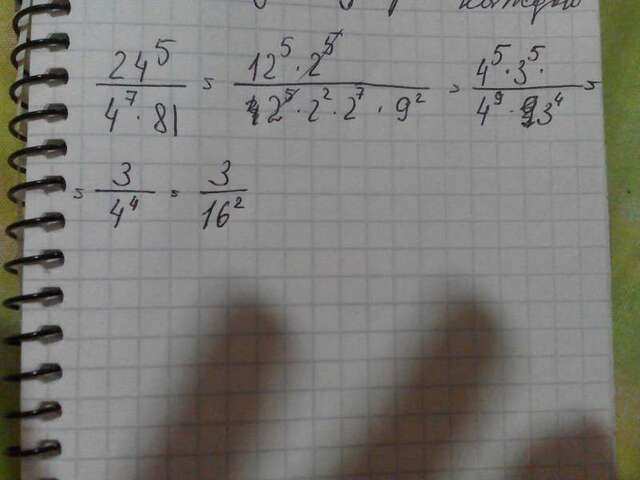 каждую
24^5 / (4^7 · 81) = (12^5 · 2^5) / (2^5 · 2^2 · 2^7 · 9^2) = (4^5 · 3^5 ·) / (4^9 · 3^4) =
= 3 / 4^4 = 3 / 16^2